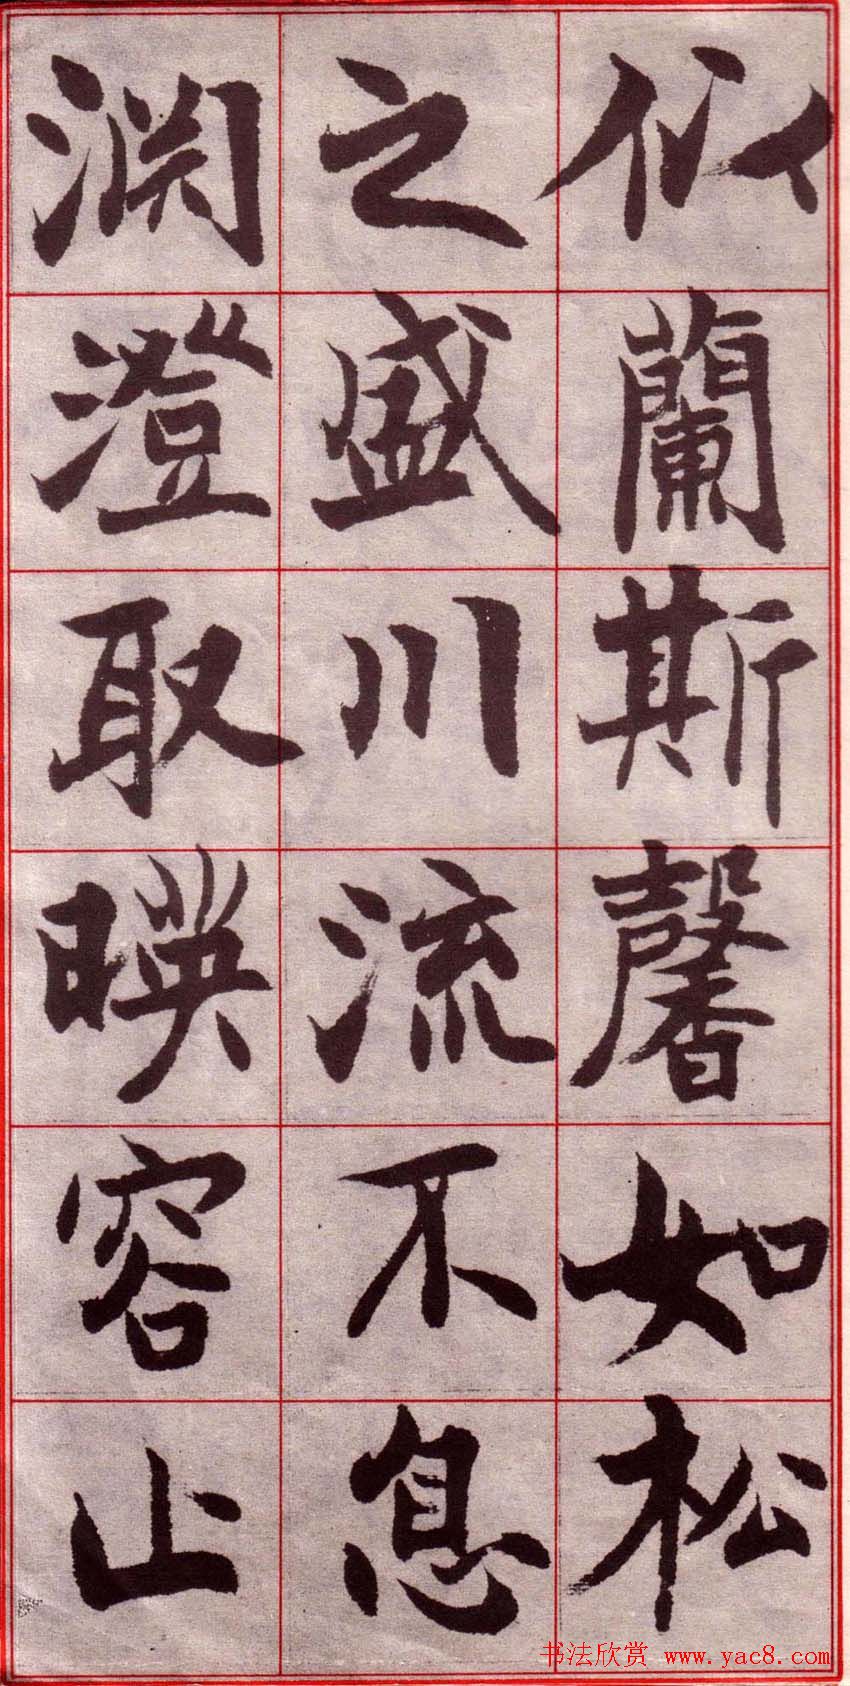 似蘭斯馨如松
之盛川流不息
渊澄取暎容止
书法欣赏 www.yac8.com